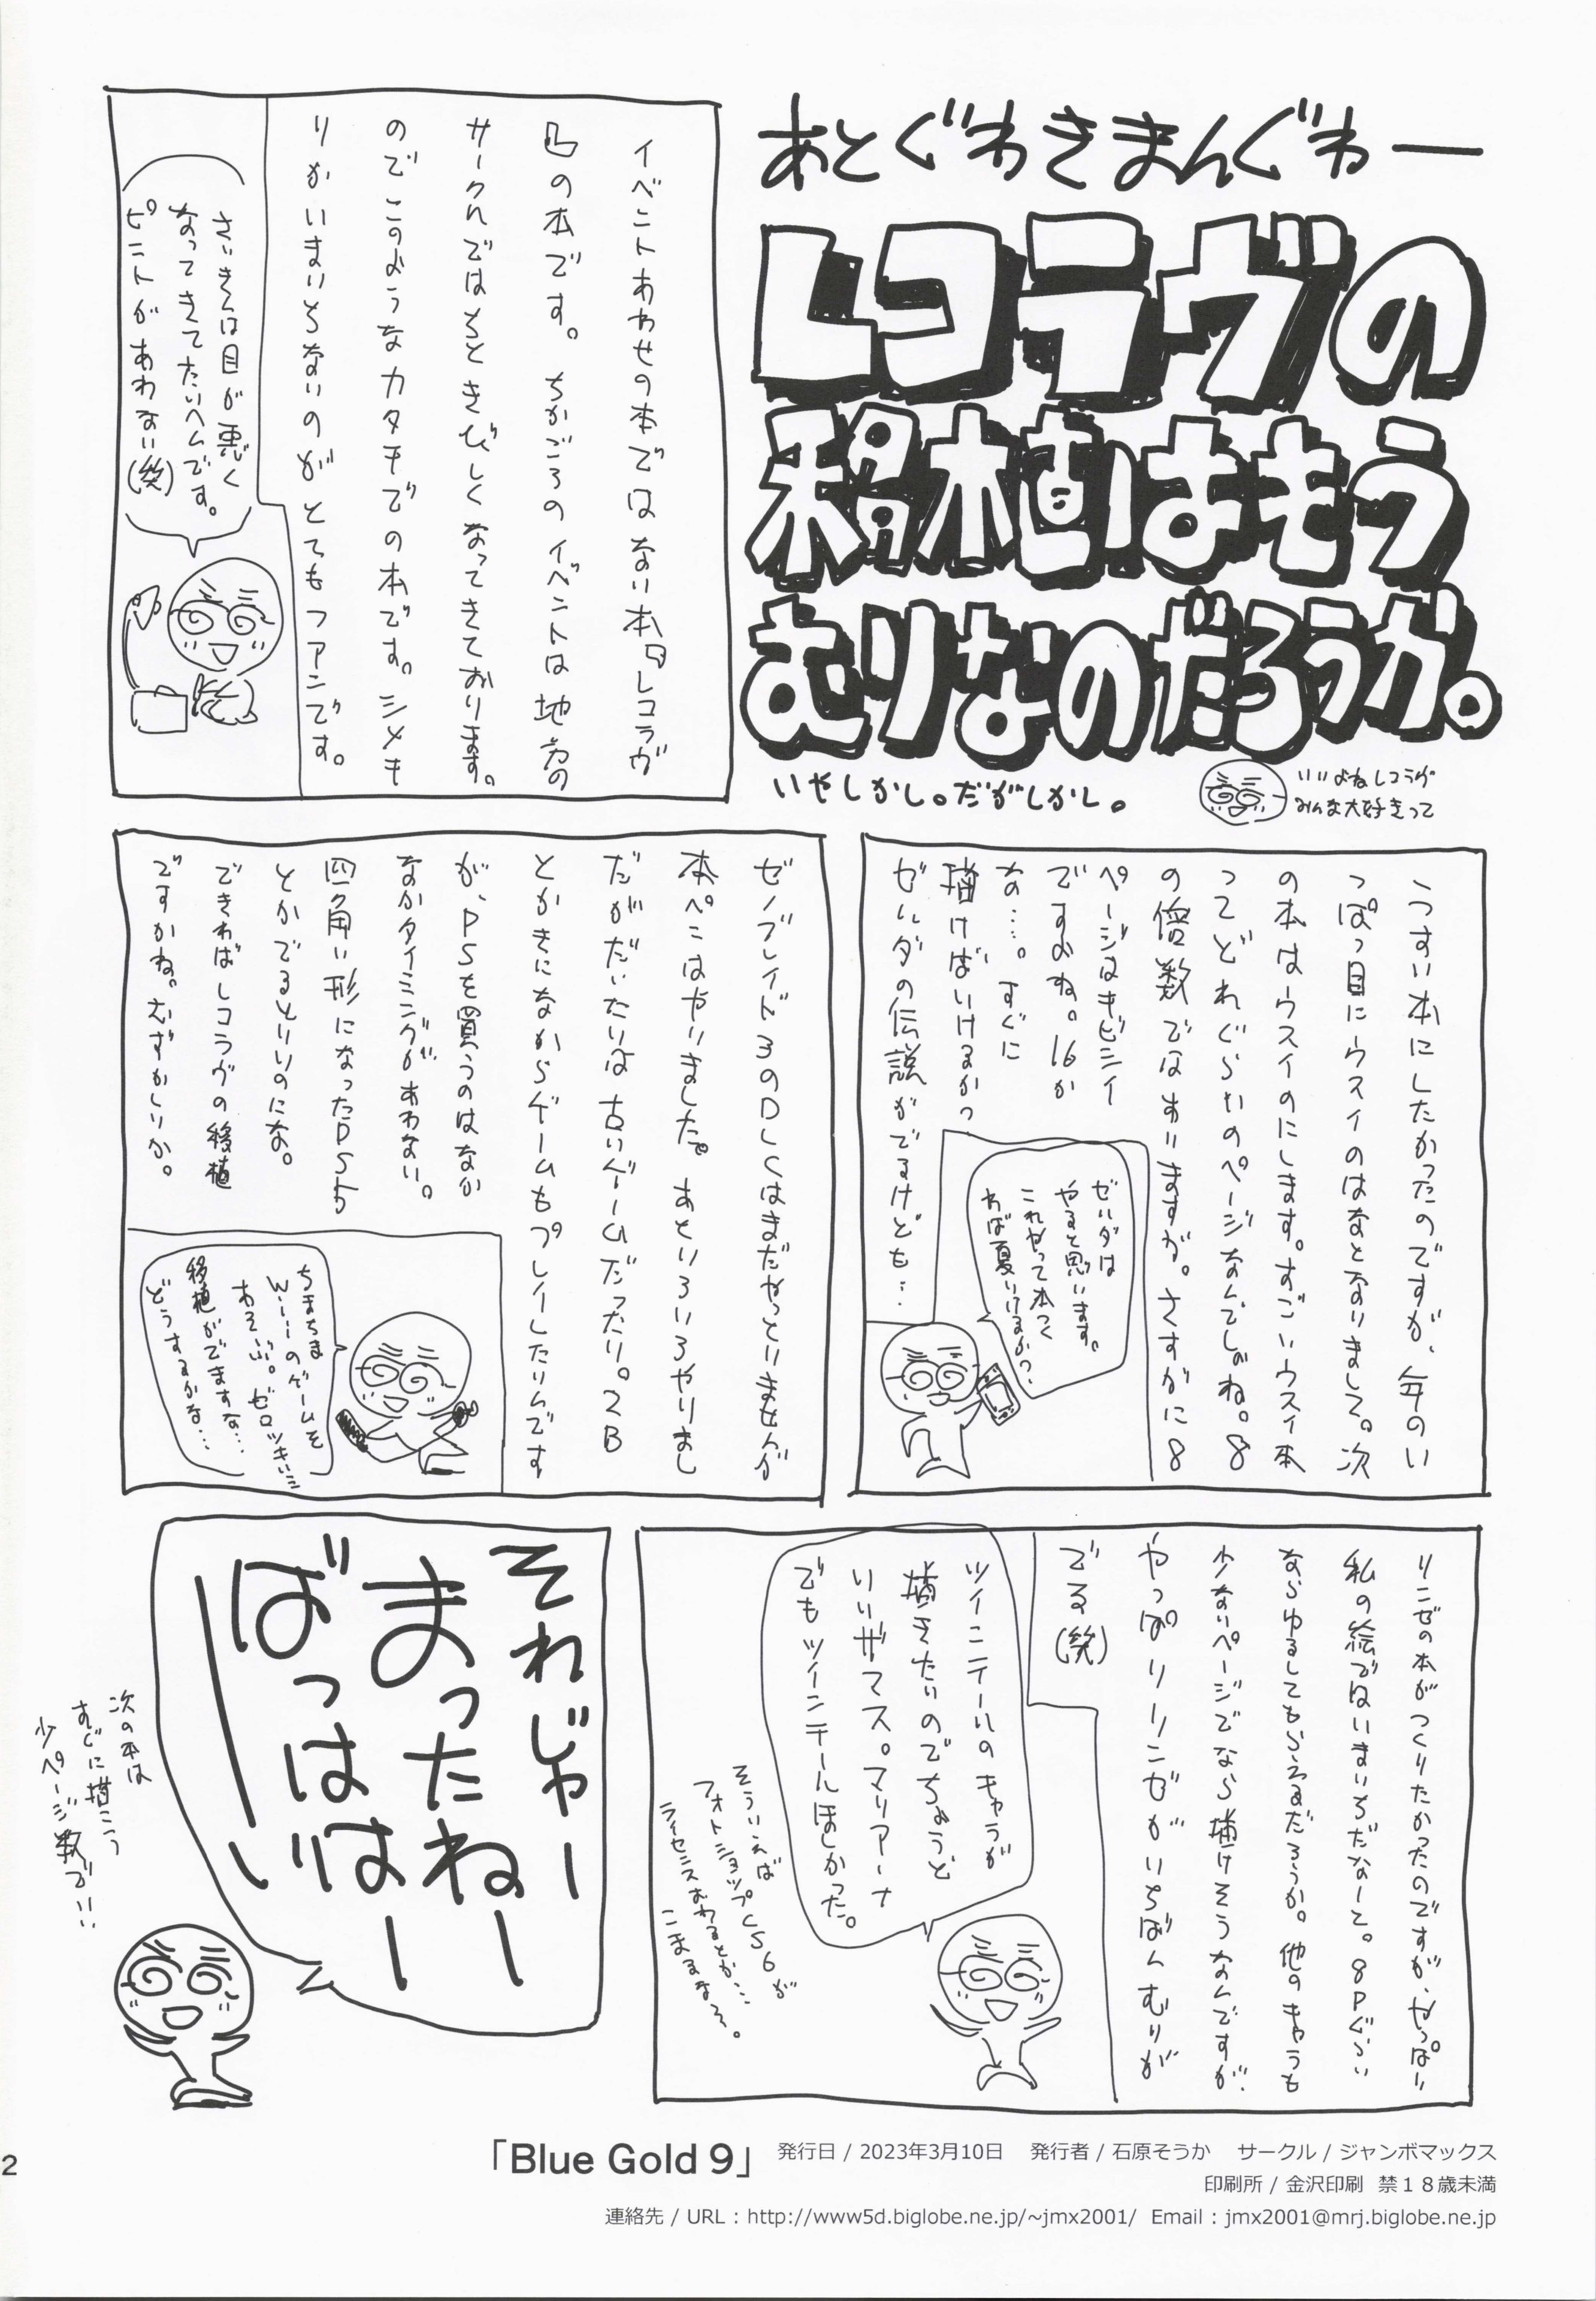 あとぐわきまんぐわー
レコラヴの
移植はもう
むりなのだろうか。
いやしかし。だがしかし。
いいよねレコラヴ
みんな大好きって
イベントあわせの本ではない本、レコラヴ
の本です。ちかごろのイベントは地方の
サークルではちときびしくなってきております。
のでこのようなカタチでの本です。シメキ
りがいまいちないのがとてもフアンです。
さいきんは目が悪く
なってきてたいへんです。
ピントがあわない(笑)
うすい本にしたかったのですが、今のい
っぽっ目にウスイのはなとなりまして。次
の本はウスイのにします。すごいウスイ本
ってどれぐらいのページなんでしょね。8
の倍数ではありますが。さすがに8
ページはキビシイ
ですよね。16か
な…。すぐに
描けばいけるかっ
ゼルダの伝説がでるけども…
ゼルダは
やると思います。
これやって本つく
れば夏いけるか?…
ゼノブレイド3のDLCはまだやっとりませんが
本ペンはやりました。あといろいろやりまし
だがだいたいは古いゲームだったり。2B
とかきになからゲームもプレイしたいんです
が、PSを買うのはなか
なかタイミングがあわない。
四角い形になったPS5
とかでるといいのにな。
できればレコラヴの移植
ですかね。むずかしいか。
ちまちま
Wiiのゲームを
あそぶ。ゼロツキいミ
移植がでますな…
どうするかな…
リンゼの本がつくりたかったのですが、やっぱり
私の絵ではいまいちだなーと。8Pぐらい
ならゆるしてもらえるだろうか。他のキャラも
少ないページでなら描けそうなんですが、
やっぱりリンゼがいちばんむりが
でる(笑)
ツインテールのキャラが
描きたいのでちょうど
いいザマス。マリアーナ
でもツインテールほしかった。
そういえば
フォトショップCS6が
ライセンスおわるとか…
こまるなろ。
それじゃー
まったねー
ばっはは
ーい
次の本は
すぐに描こう
少ページ数で!!
2
「Blue Gold 9」 発行日 / 2023年3月10日 発行者 / 石原そうか サークル / ジャンボマックス
印刷所 / 金沢印刷 禁18歳未満
連絡先 / URL : http://www5d.biglobe.ne.jp/~jmx2001/ Email : jmx2001@mrj.biglobe.ne.jp